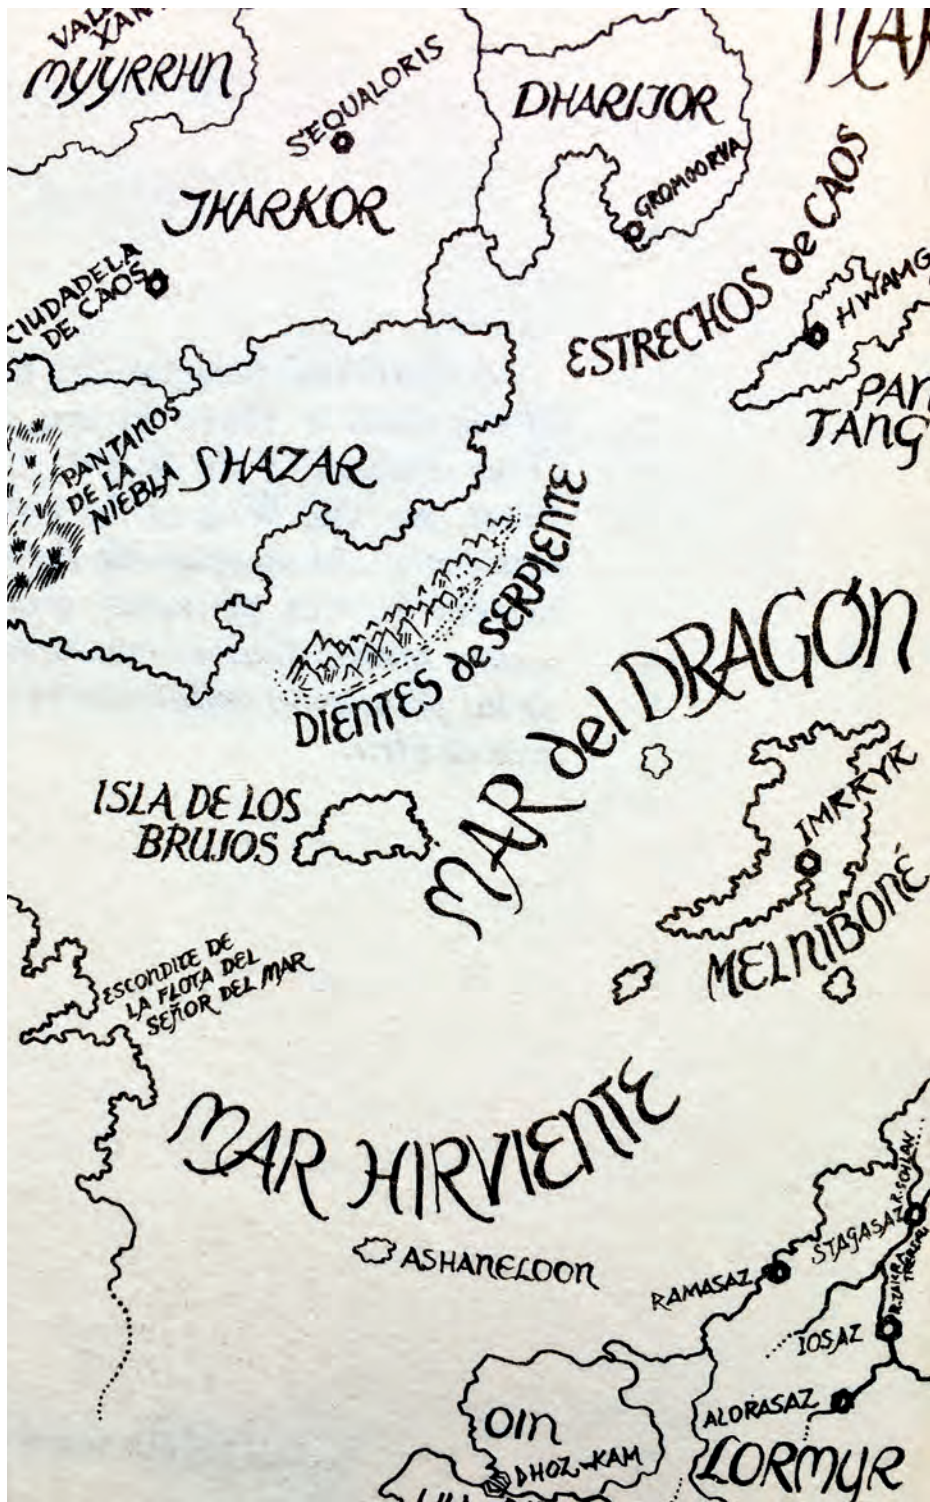 MYYRRHN
SEQUALORIS
DHARIJOR
GROMOORVA
JHARKOR
CIUDADELA
DE CAOS
ESTRECHOS de CAOS
PAN
TANG
PANTANOS
DE LA
NIEBLA
SHAZAR
DIENTES de SERPIENTE
MAR del DRAGÓN
ISLA DE LOS
BRUJOS
IMRRYR
MELNIBONÉ
ESCONDITE DE
LA FLOTA DEL
SEÑOR DEL MAR
MAR HIRVIENTE
ASHANELOON
STAGASAZ
RAMASAZ
IOSAZ
ALORASAZ
OIN
DHOZ-KAM
LORMYR